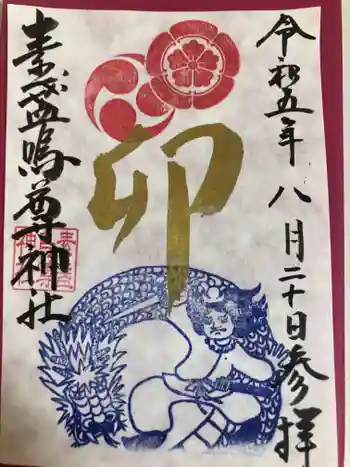 令和五年八月二十日参拝
卯
素盞嗚尊神社